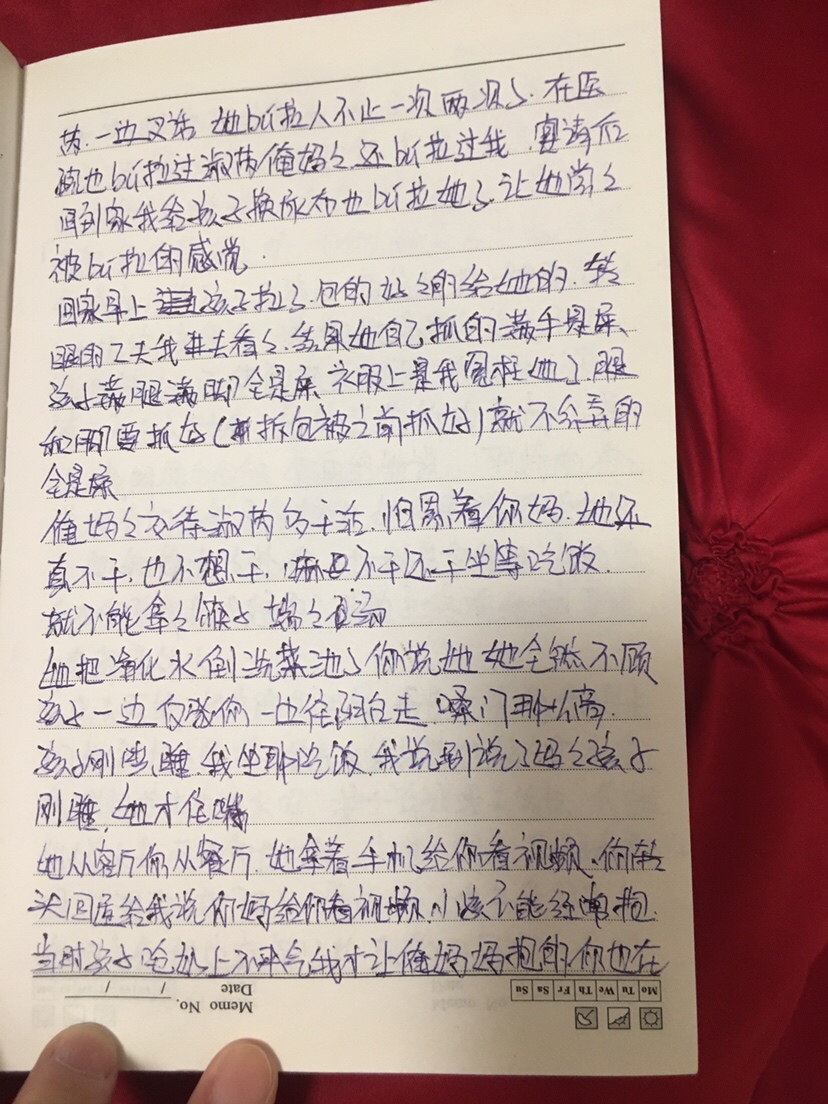 芮.一边又话 她bú拉人不止一次两次了.在医
院也bú拉过淑芮俺妈妈.还bú拉过我.宴请后
回到家我给孩子换尿布也bú拉她了.让她尝之
被bú拉的感觉.
回家早上孩子拉了.包的好之的给她的.转
眼的工夫我再去看之.结果她自己抓的满手是屎、
孩子满腿满脚全是屎.衣服上是我冤枉她了.腿
和脚要抓好(拆包被之前抓好)就不会弄的
全是屎
俺妈之交待淑芮多干活.怕累着你妈.她还
真不干.也不想干.不干还干坐等吃饭.
就不能拿之筷子 端之
她把净化水倒洗菜池了你说她她全然不顾
孩子一边反驳你一边往阳台走 嗓门那么高.
孩子刚睡.我坐那吃饭.我说别说了妈之孩子
刚睡.她才住嘴
她从客厅你从餐厅.她拿着手机给你看视频.你转
头回屋给我说你妈给你看视频.小孩不能经常抱.
当时孩子呛奶上不来气我才让俺妈妈抱的你也在
Memo No.
Date / /
Mo Tu We Th Fr Sa Su